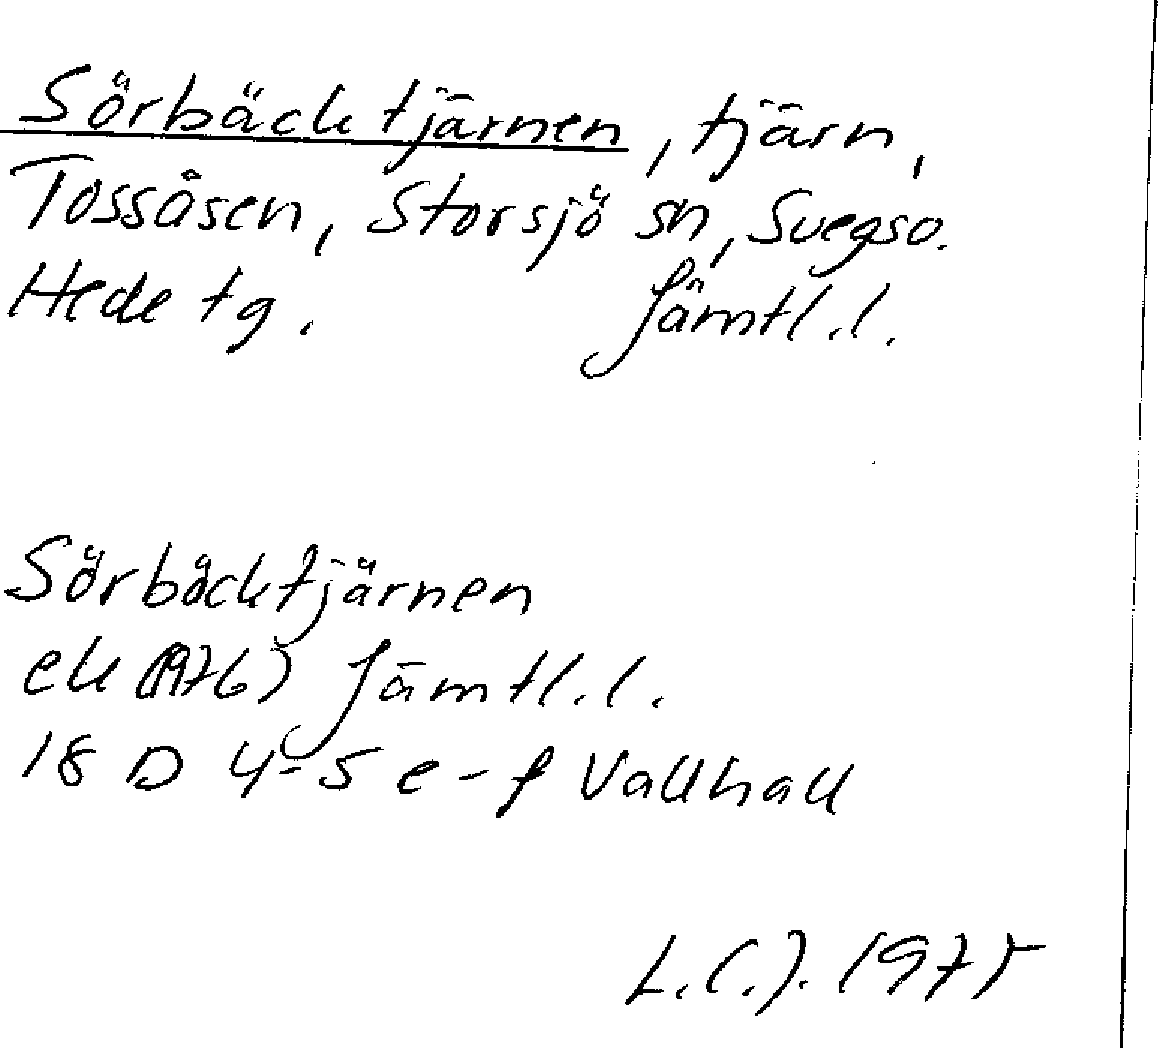 Sörbäcktjärnen, tjärn,
Tossåsen, Storsjö sn, Svegso.
Hede tg. Jämtl.l.
Sörbäcktjärnen
ek (1976) Jämtl.l.
18 D 4-5 e-f Vallhall
L.(.). 1975